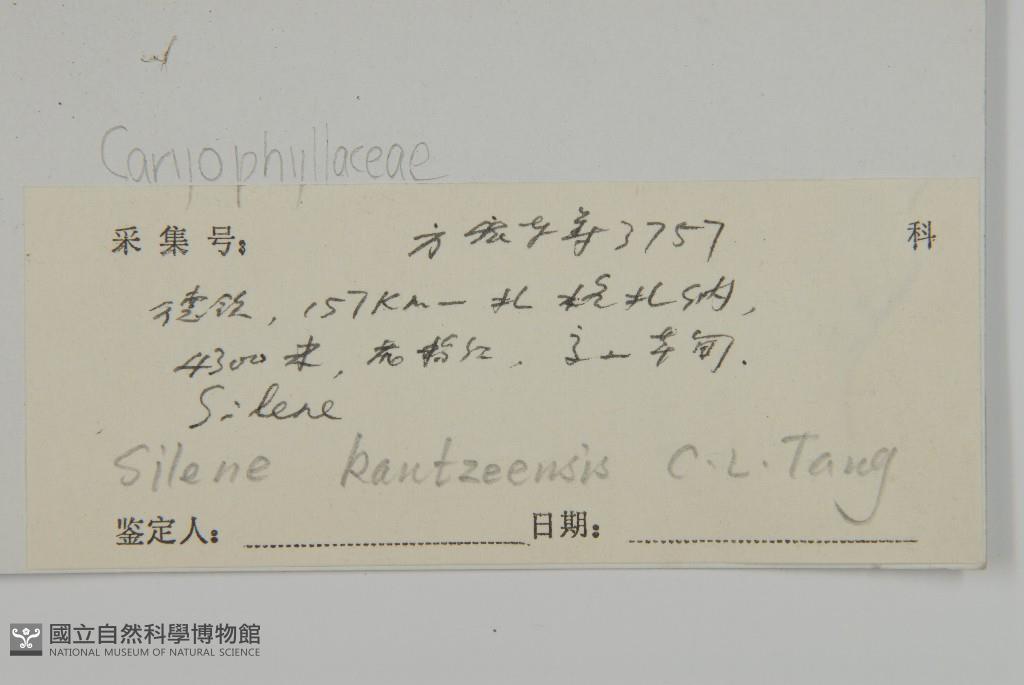 Caryophyllaceae
采集号: 方 等 3757 科
德钦, 157Km一
4300米, 花粉红, 高山草甸.
Silene
Silene kantzeensis C.L.Tang
鉴定人: 日期:
國立自然科學博物館
NATIONAL MUSEUM OF NATURAL SCIENCE